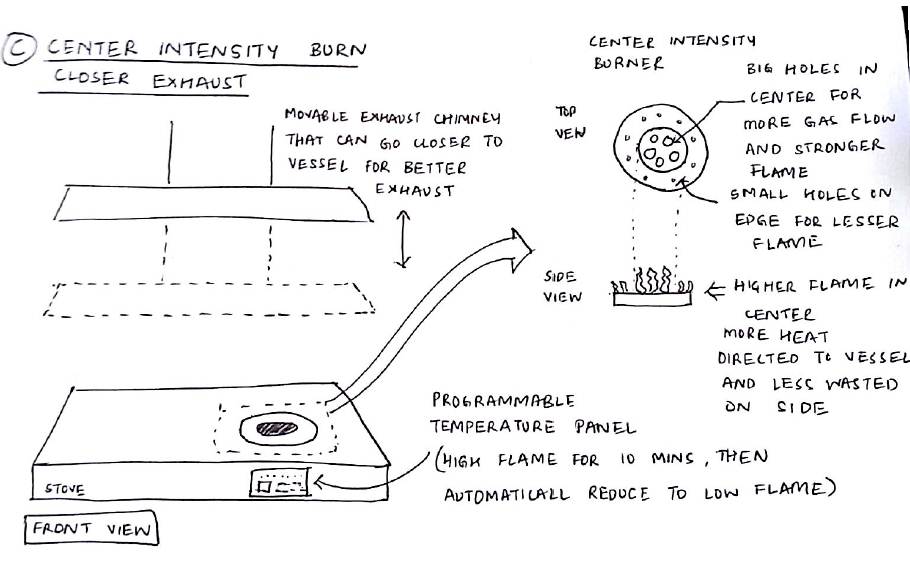 C CENTER INTENSITY BURN
CLOSER EXHAUST
MOVABLE EXHAUST CHIMNEY
THAT CAN GO CLOSER TO
VESSEL FOR BETTER
EXHAUST
CENTER INTENSITY
BURNER
TOP
VEW
BIG HOLES IN
CENTER FOR
MORE GAS FLOW
AND STRONGER
FLAME
SMALL HOLES ON
EDGE FOR LESSER
FLAME
SIDE
VIEW
HIGHER FLAME IN
CENTER
MORE HEAT
DIRECTED TO VESSEL
AND LESS WASTED
ON SIDE
PROGRAMMABLE
TEMPERATURE PANEL
(HIGH FLAME FOR 10 MINS, THEN
AUTOMATICALL REDUCE TO LOW FLAME)
STOVE
FRONT VIEW